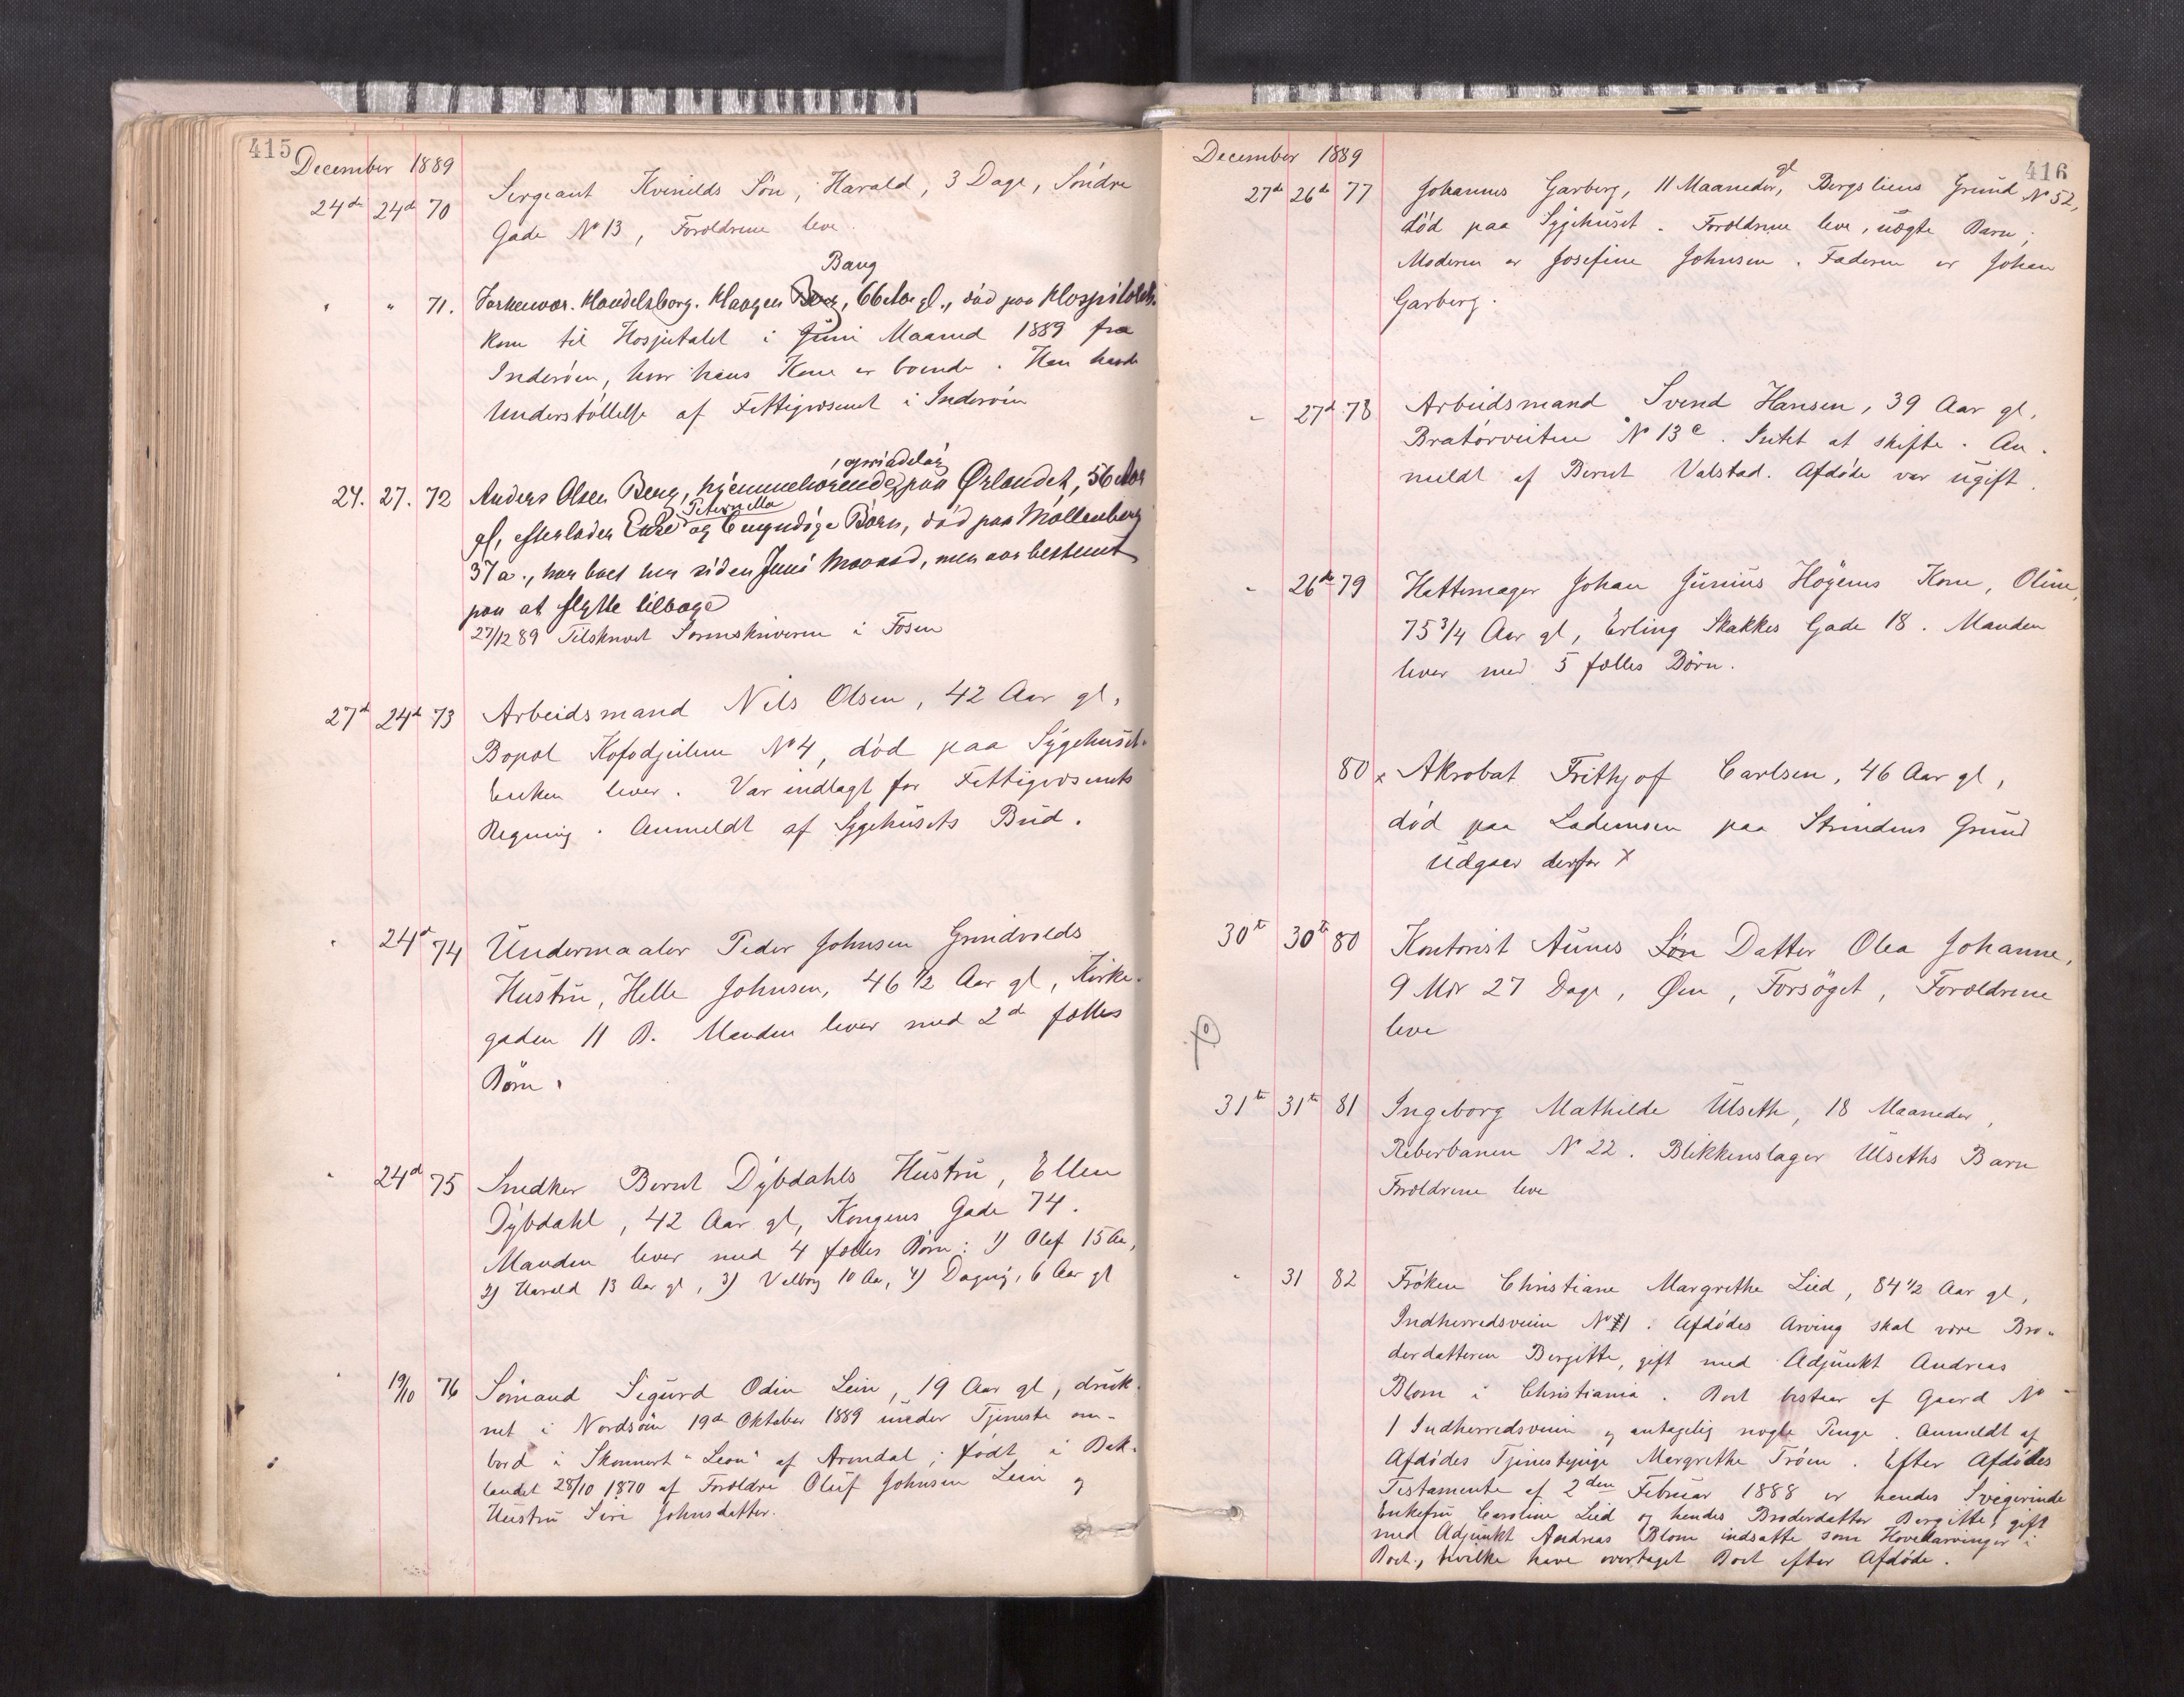 415
December 1889
24de 24d 70 Sergeant Kvenilds Søn, Harald, 3 Dage, Søndre
Gade No 13, Forældrene leve.
Bang
" " 71. Handelsborg. Haagen Berg, 66 Aar gl., død paa Hospitalet.
kom til Hospitalet i Juni Maaned 1889 fra
Inderøen, hvor hans Kone er boende. Han havde
Understøttelse af Fattigvæsenet i Inderøen
24. 27. 72 Anders Olsen Berg, hjemmehørende paa Ørlandet, 56 Aar
Peternella
gl, efterlader Enke og 6 umyndige Børn, død paa Møllenberg
37a., har boet her siden Juni Maaned, men var bestemt
paa at flytte tilbage
27/12 89 Tilskrevet Sorenskriveren i Fosen
27d 24d 73 Arbeidsmand Nils Olsen, 42 Aar gl,
Bopæl Kofodgeilene No 4, død paa Sygehuset.
Enken lever. Var indlagt for Fattigvæsenets
Regning. Anmeldt af Sygehusets Bud.
" 24d 74 Undermaaler Peder Johnsen Grindvolds
Hustru, Helle Johnsen, 46 1/2 Aar gl, Kirke-
gaden 11 B. Manden lever med 2de fælles
Børn.
" 24d 75 Snedker Bernt Dybdahls Hustru, Ellen
Dybdahl, 42 Aar gl, Kongens Gade 74.
Manden lever med 4 fælles Børn: 1) Olef 15 Aa,
2) Harald 13 Aar gl, 3) Valborg 10 Aa, 4) Dagny, 6 Aar gl
" 19/10 76 Sømand Sigurd Odin Lein, 19 Aar gl, druk-
net i Nordsøen 19de Oktober 1889 under Tjeneste om-
bord i Skonnert "Leon" af Arendal; født i Bak-
landet 28/10 1870 af Forældre Oluf Johnsen Lein og
Hustru Siri Johnsdatter.
416
December 1889
gl
27de 26de 77 Johannes Garberg, 11 Maaneder, Bergsliens Grund No 52,
død paa Sygehuset. Forældrene leve, uægte Barn;
Moderen er Josefine Johnsen. Faderen er Johan
Garberg.
" 27d 78 Arbeidsmand Svend Hansen, 39 Aar gl,
Bratørveiten No 13c. Intet at skifte. An-
meldt af Bernt Valstad. Afdøde var ugift.
" 26de 79 Hattemager Johan Junius Høyems Kone, Oline,
75 3/4 Aar gl, Erling Skakkes Gade 18. Manden
lever med 5 fælles Børn.
80 x Akrobat Frithjof Carlsen, 46 Aar gl,
død paa Lademoen paa Strindens Grund
Udgaar derfor x
30te 30te 80 Kontorist Aunes Søn Datter Olea Johanne,
9 Mdr 27 Dage, Øen, Forsøget, Forældrene
leve
31te 31te 81 Ingeborg Mathilde Ulseth, 18 Maaneder,
Reberbanen No 22. Blikkenslager Ulseths Barn
Forældrene leve
" 31 82 Frøken Christiane Margrethe Lied, 84 1/2 Aar gl,
Indherredsveien No 1. Afdødes Arving skal være Bro-
derdatteren Bergitte, gift med Adjunkt Andreas
Blom i Christiania. Boet bestaar af Gaard No
1 Indherredsveien og antagelig nogle Penge. Anmeldt af
Afdødes Tjenestepige Margrethe Trøen. Efter Afdødes
Testamente af 2den Februar 1888 er hendes Svigerinde
Enkefru Caroline Lied og hendes Broderdatter Bergitte, gift
med Adjunkt Andreas Blom indsatte som Hovedarvinger i
Boet, hvilke have overtaget Boet efter Afdøde.